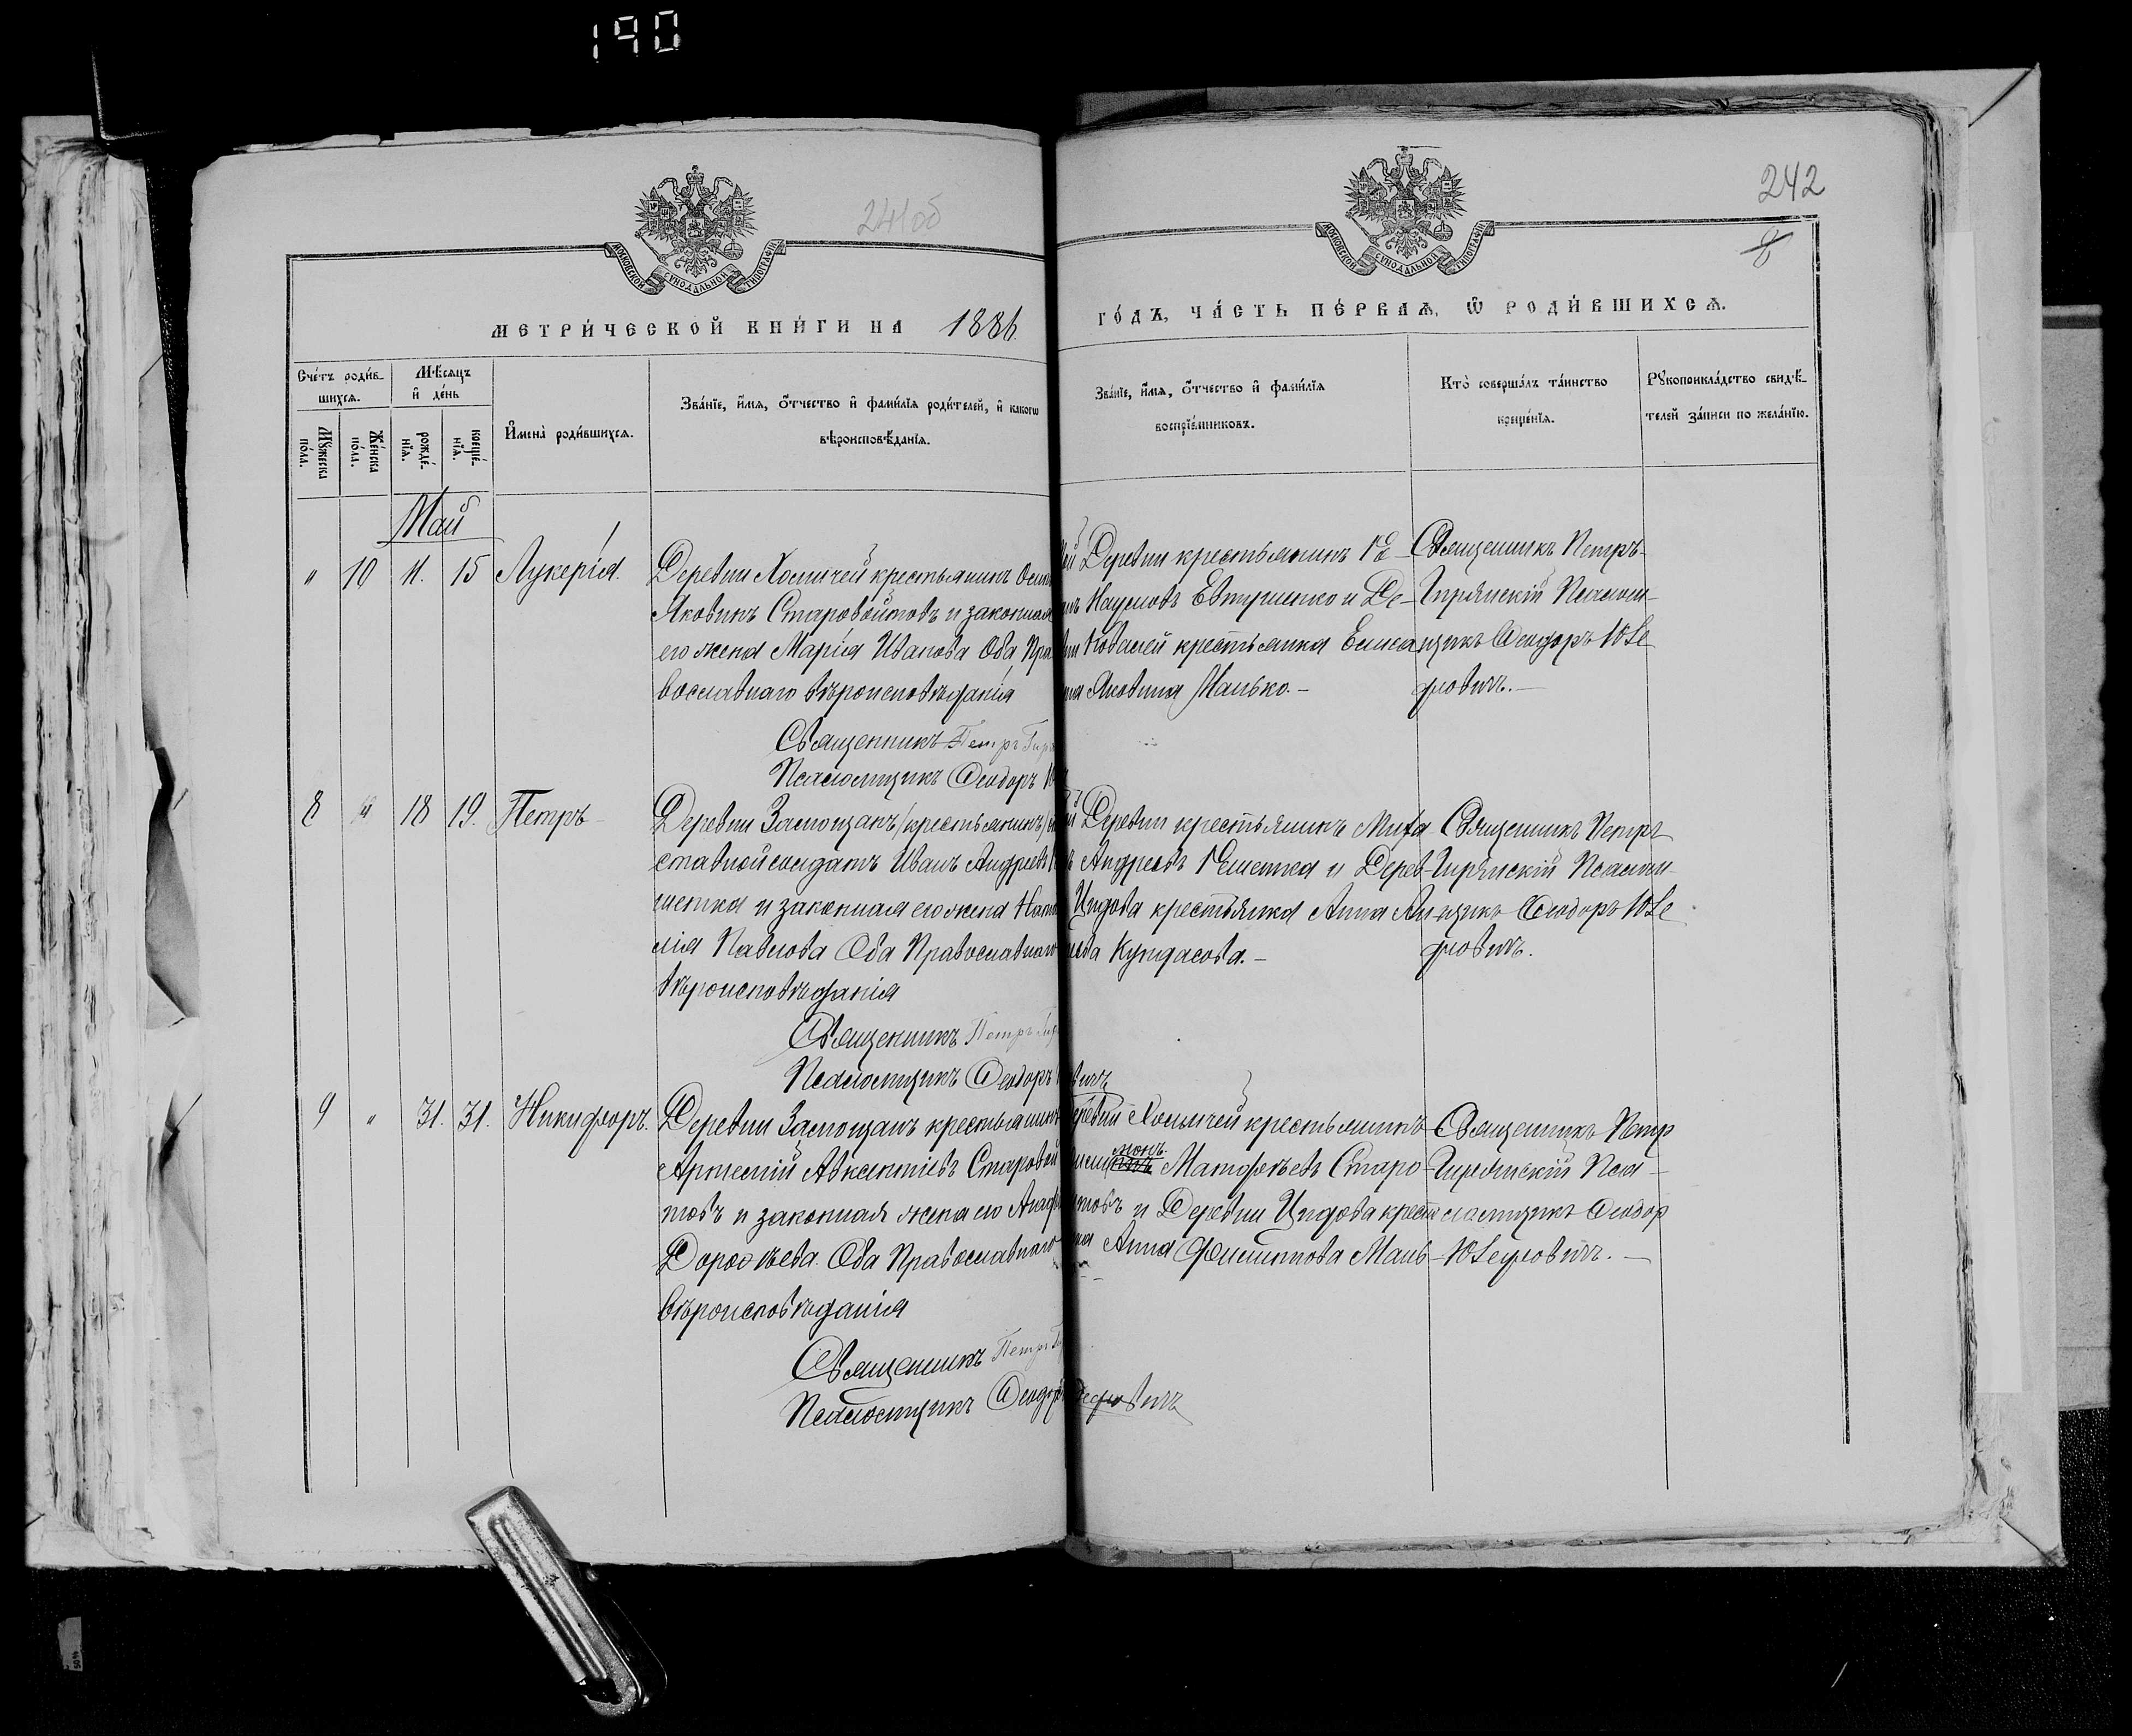 190
241об
242
8
МОСКОВСКОЙ СѴНОДАЛЬНОЙ ТИПОГРАФІИ
МОСКОВСКОЙ СѴНОДАЛЬНОЙ ТИПОГРАФІИ
МЕТРИ́ЧЕСКОЙ КНИ́ГИ НА 1886
ГО́ДЪ, ЧА́СТЬ ПЕ́РВАѦ, Ѡ҆ РОДИ́ВШИХСѦ.
Сче́тъ роди́в-
шихсѧ.
Мꙋ́жеска
по́ла.
Же́нска
по́ла.
Мѣ́сѧцъ
и҆ де́нь
рожде́-
нїѧ.
креще́-
нїѧ.
И҆мена̀ роди́вшихсѧ.
Зва́нїе, и҆́мѧ, ѻ҆́тчество и҆ фами́лїѧ роди́телей, и҆ како́гѡ
вѣроисповѣ́данїѧ.
Зва́нїе, и҆́мѧ, ѻ҆́тчество и҆ фами́лїѧ
воспрїе́мниковъ.
Кто̀ соверша́лъ та́инство
креще́нїѧ.
Рꙋкоприкла́дство свидѣ́-
телей за́писи по жела́нїю.
Май
" 10 11. 15 Лукерія.
Деревни Хомичей крестьянинъ
Яковинъ Старовойтовъ и законная
его жена Марія Иванова Оба Пра
вославнаго вѣроисповѣданія
Священникъ Петръ
Псаломщикъ Ѳеодоръ
Деревни крестьянинъ
Наумовъ Евтушенко и Де-
Ковалей крестьянка Елиса
Яковина Манько.-
Священникъ Петръ-
Гирянскій Псалом-
щикъ Ѳеодоръ Юзе
фовичъ.-
8 " 18 19. Петръ
Деревни Замощанъ /крестьянинъ/
ставной солдатъ Иванъ Андреевъ
шетка и законная его жена Ната
лія Павлова Оба Православнаго
вѣроисповѣданія
Священникъ Петръ
Псаломщикъ Ѳеодоръ
Деревни крестьянинъ Миха
Андреевъ Решетка и Дерев-
Цидова крестьянка Анна Ан
Кундасова.-
Священникъ Петръ
Гирянскій Псалом-
щикъ Ѳеодоръ Юзе
фовичъ.
9 " 31. 31. Никифоръ.
Деревни Замощанъ крестьянинъ
Артемій Авксентіевъ Старовой
товъ и законная жена его Агаф
Дороѳѣева. Оба Православнаго
вѣроисповѣданія
Священникъ Петръ
Псаломщикъ Ѳеодоръ Юзефовичъ
Деревни Хомичей крестьянинъ
Матфѣевъ Старо-
товъ и Деревни Цидова кресть
Анна Филиппова Мань-
Священникъ Петръ
Гирянскій Пса-
ломщикъ Ѳеодор
Юзефовичъ.-